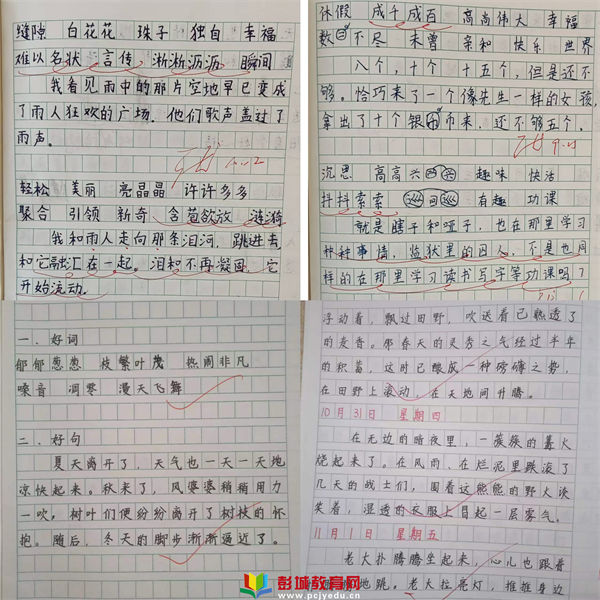 缝隙 白花花 珠子 独自 幸福
难以名状 言传 淅淅沥沥 瞬间
我看见雨中的那片空地早已变成
了雨人狂欢的广场。他们歌声盖过了
雨声。
轻松 美丽 亮晶晶 许许多多
聚合 引领 新奇 含苞欲放 涟漪
我和雨人走向那条泪河,跳进去,
和它融汇在一起。泪和不再凝固,它
开始流动。
休假 成千成百 高尚伟大 幸福
数 不尽 未曾 亲和 快乐 世界
八个,十个 十五个,但是还不
够。恰巧来了一个像先生一样的女孩,
拿出了十个银币来,还不够五个,
沉思 高高兴兴 趣味 快活
抖抖索索 有趣 功课
就是瞎子和哑子,也在那里学习
种种事情,监狱里的囚人,不是也同
样的在那里学习读书写字等功课吗?
一.好词
郁郁葱葱 枝繁叶茂 热闹非凡
嗓音 凋零 漫天飞舞
二.好句
夏天离开了,天气也一天一天地
凉快起来。秋来了,风婆婆稍稍用力
一吹,树叶们便纷纷离开了树枝的怀
抱。随后,冬天的脚步渐渐逼近了。
浮动着,飘过田野,吹送着已熟透了
的麦香。那春天的灵秀之气经过半年
的积蓄,这时已酿成一种磅礴之势,
在田野上滚动,在天地间升腾。
10月31日 星期四
在无边的暗夜里,一簇簇的篝火
烧起来了。在风雨、在烂泥里跌滚了
几天的战士们,围着这熊熊的野火谈
笑着,湿透的衣服上冒起一层雾气。
11月1日 星期五
老大扑腾腾坐起来,心儿也跟着
地跳。老大拉亮灯,推推身边
彭城教育网
www.pcjyedu.cn